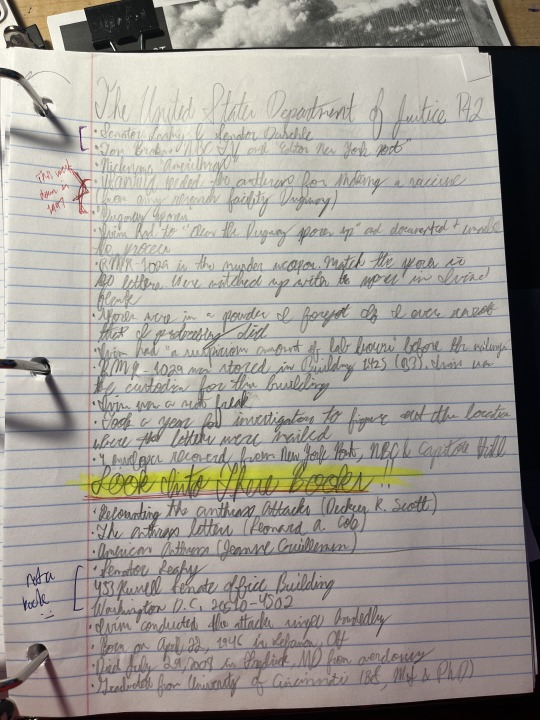 The United States Department of Justice 142
• Senator Leahy & Senator Daschle
• Tom Brokaw NBC TV and "Editor New York Post"
This work down in 1997
from army research facility Dugway)
• Dugway Spores
• Ivins had to "clean the Dugway spores up" and documented +
the process
• RMR-1029 is the murder weapon. Match the spores in
the letters were matched up with the spores in Ivins'
flask
• Spores were in a powder I forgot if I ever wrote
that I did
• Ivins had "a suspicious amount of lab hours" before the mailings
• RMR-1029 was stored in Building 1425 (B3). Ivins was
the custodian for the building
• Ivins was a
• Took a year for investigators to figure out the location
where the letters were mailed
• 4 envelopes recovered from New York Post, NBC & Capitol Hill
Look Into These Books!!
• Recounting the anthrax attacks (Decker R. Scott)
• The anthrax letters (Leonard A. Cole)
• American Anthrax (Jeanne Guillemin)
not a book
• Senator Leahy
433 Russell Senate Office Building
Washington D.C. 20510-4502
• Ivins conducted the attacks single handedly
• Born on April 22, 1946 in Lebanon, OH
• Died July 29, 2008 in Frederick, MD from overdose
• Graduated from University of Cincinnati (BS, MS & PhD)